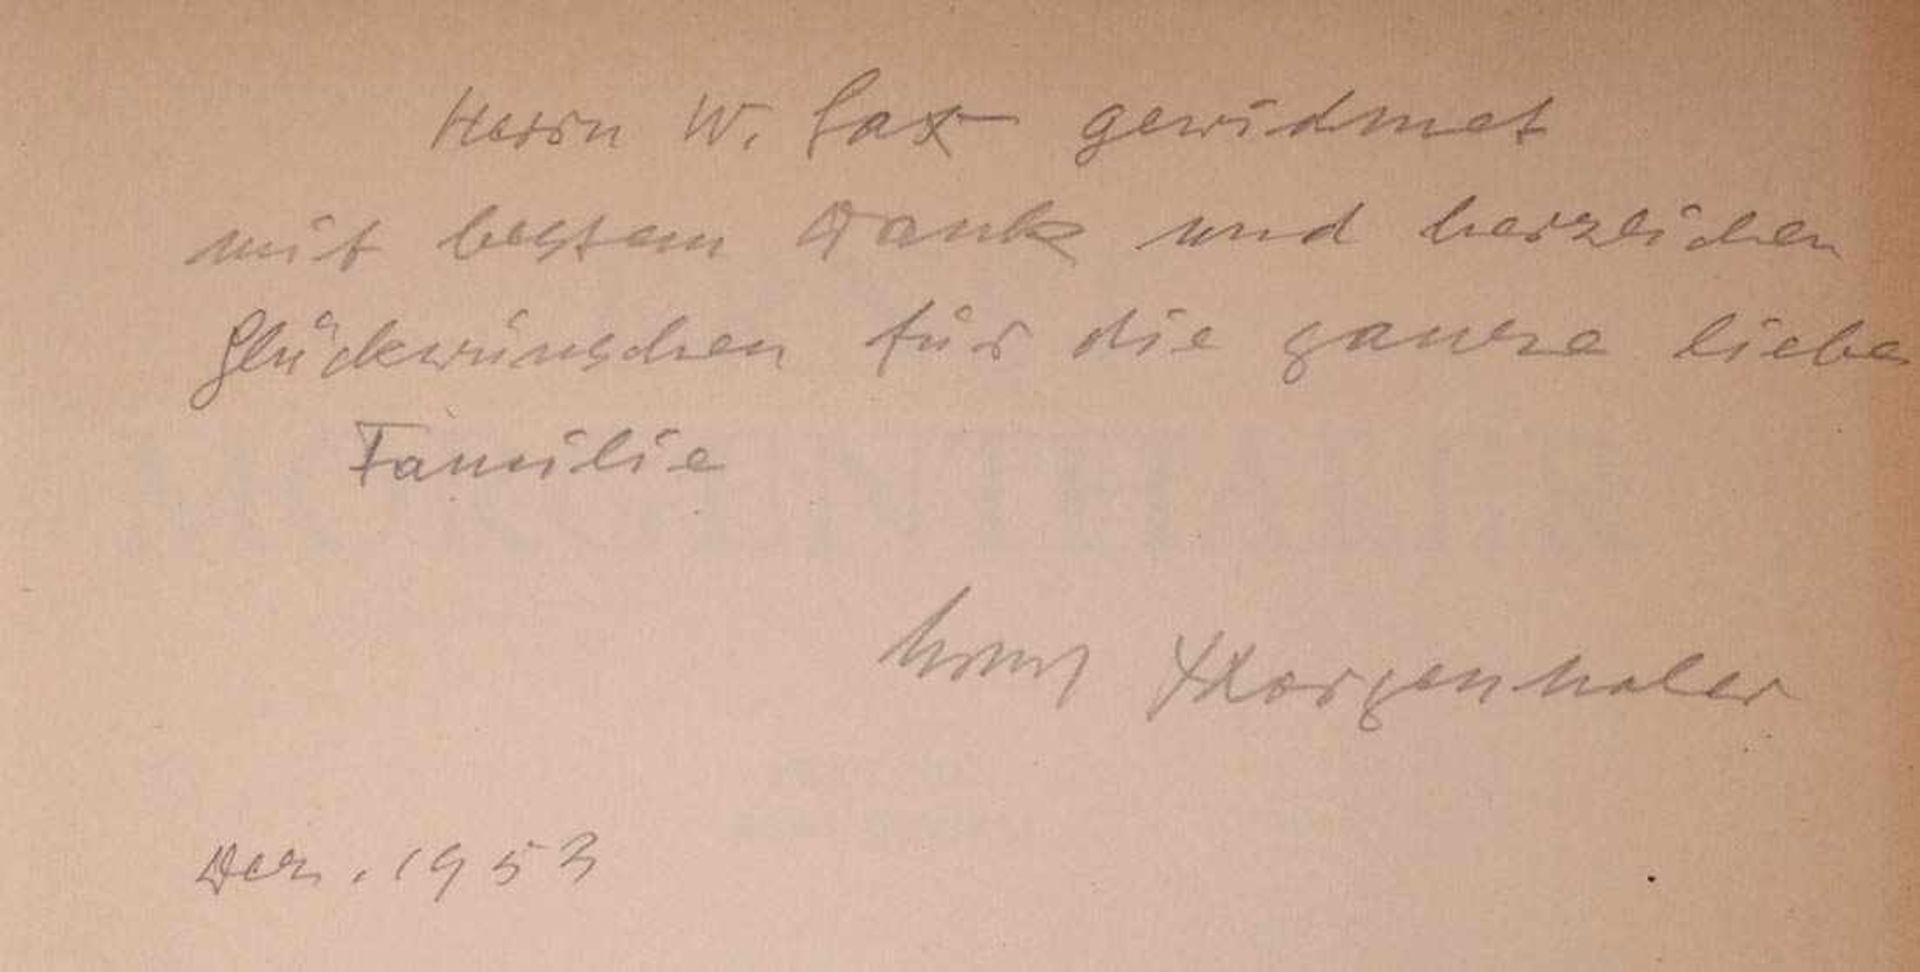 Herrn W. Sax gewidmet
mit bestem Dank und herzlichen
Glückwünschen für die ganze liebe
Familie
Ernst Morgenthaler
Dez. 1953